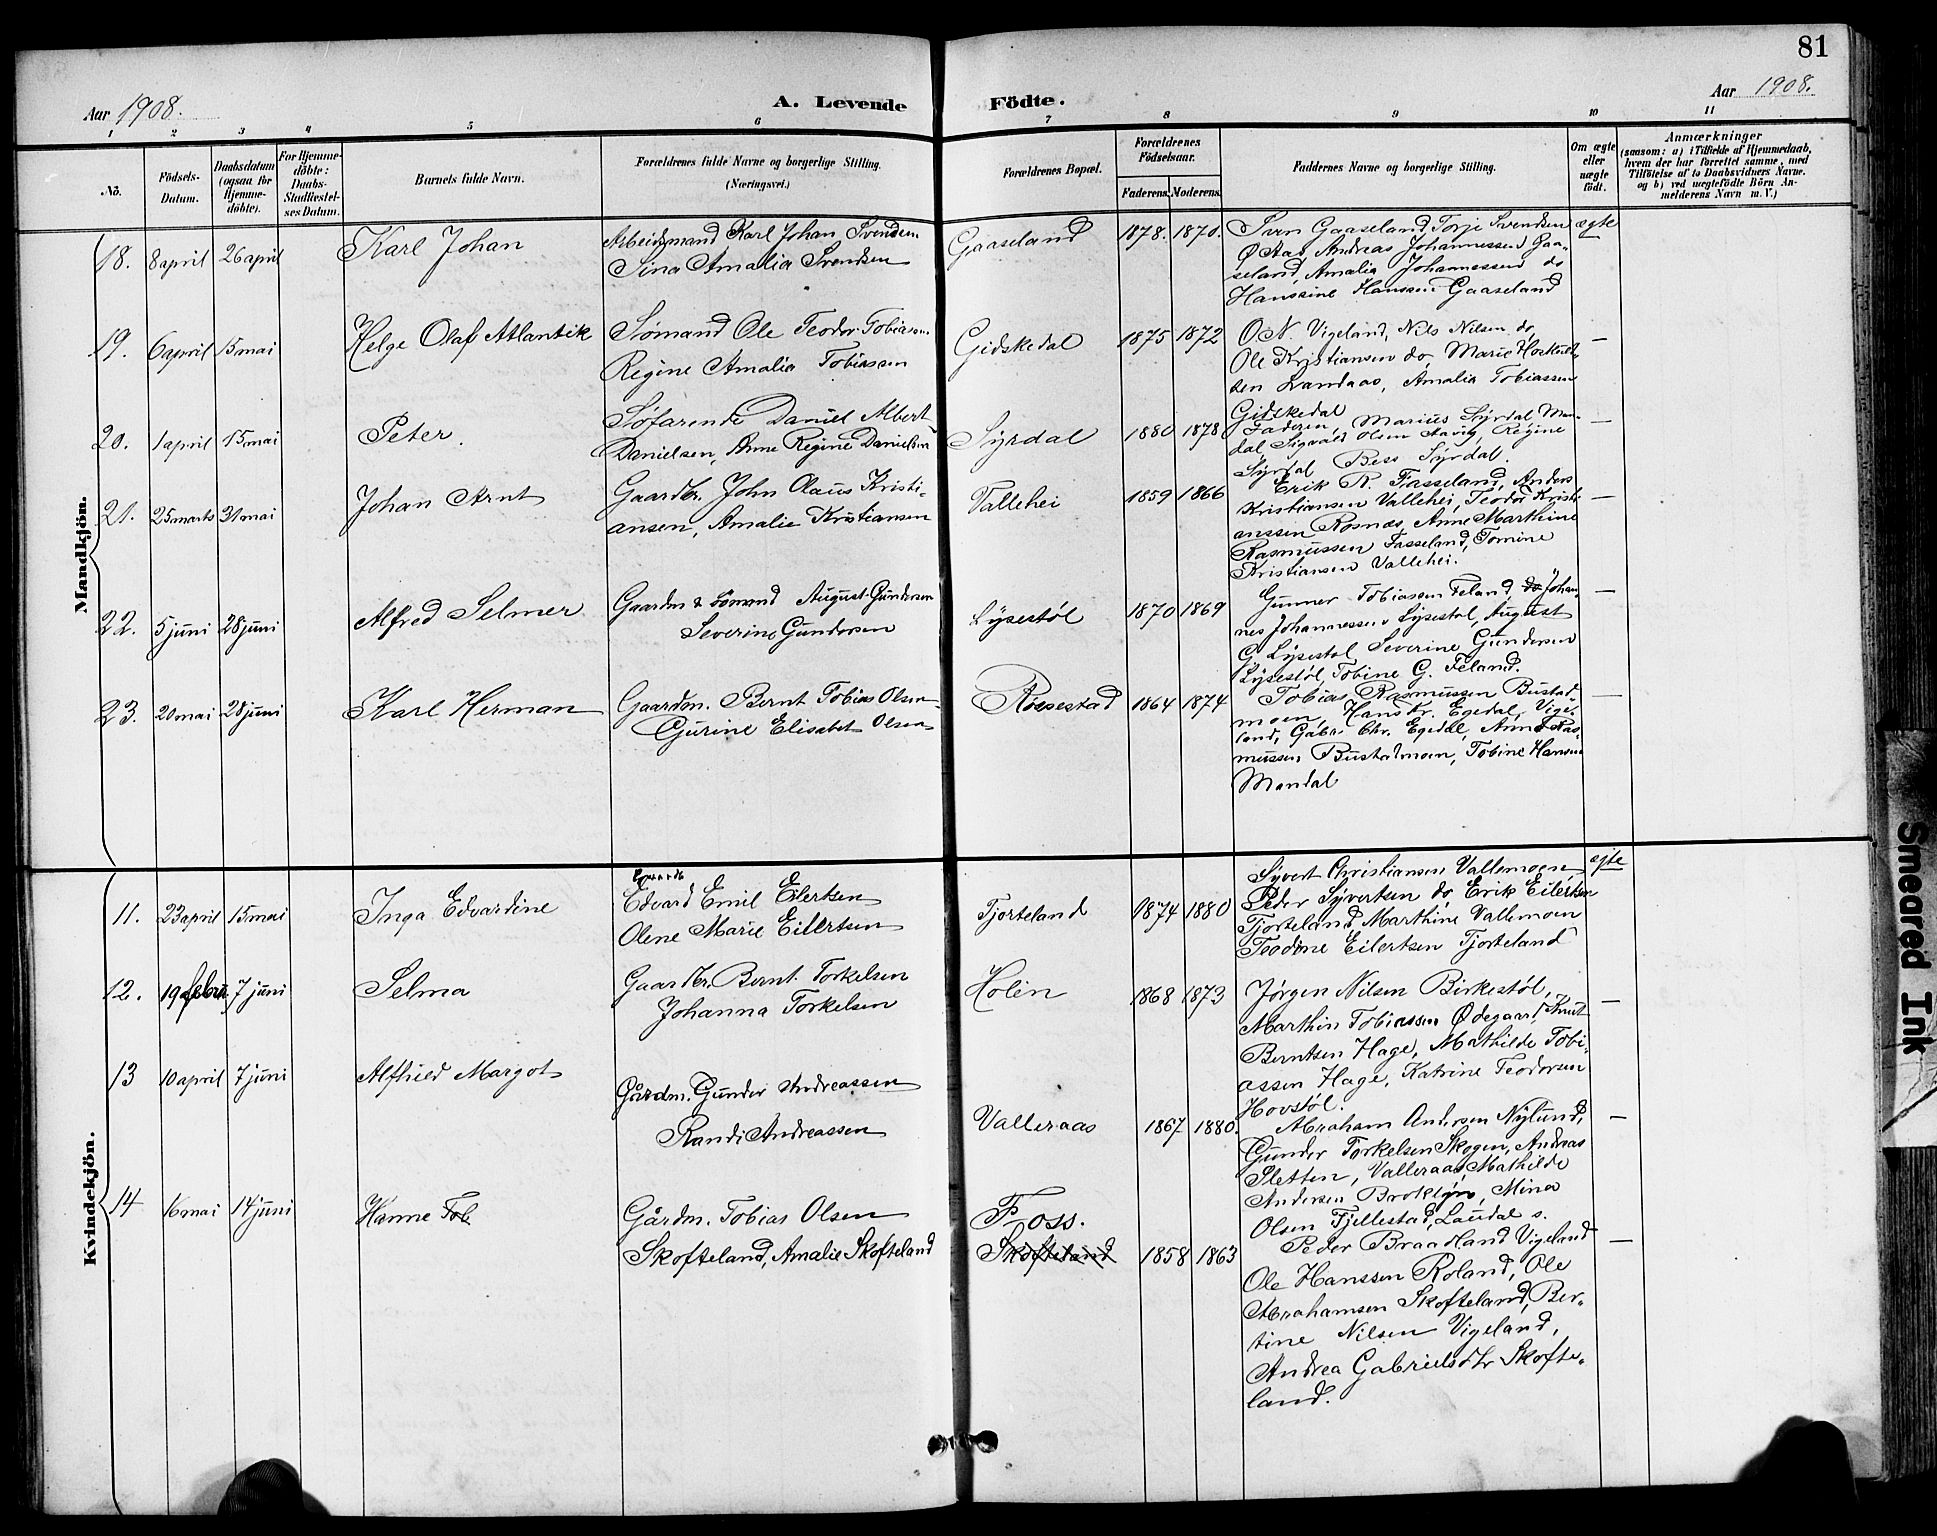 81
Aar 1908.
A. Levende Födte.
Aar 1908.
1 2 3 4 5 6 7 8 9 10 11
No.
Födsels-
Datum.
Daabsdatum
(ogsaa for
Hjemme-
döbte).
For Hjemme-
döbte:
Daabs-
Stadfæstel-
ses Datum.
Barnets fulde Navn.
Forældrenes fulde Navne og borgerlige Stilling.
(Næringsvei.)
Forældrenes Bopæl.
Forældrenes
Födselsaar.
Faderens. Moderens.
Faddernes Navne og borgerlige Stilling.
Om ægte
eller
uægte
født.
Anmærkninger
(saasom: a) i Tilfælde af Hjemmedaab,
hvem der har forrettet samme, med
Tilföielse af to Daabsvidners Navne.
og b) ved uægtefödte Börn An-
melderens Navn m. V.)
Mandkjön.
18. 8 april 26 april Karl Johan
Arbeidsmand Karl Johan Svendsen
Sina Amalia Svendsen
Gaaseland 1878. 1870.
Sven Gaaseland Torje Svendsen
Ø Aas, Andreas Johannessen Gaa-
seland, Amalia Johannessen do
Hanssine Hanssen Gaaseland
ægte
19. 6 april 15 mai Helge Olaf Atlantik
Sømand Ole Teodor Tobiassen
Regine Amalia Tobiassen
Gidskedal 1875 1872
O. N. Vigeland, Nils Nilsen do,
Ole Kristiansen do, Marie Hoskuld-
sen Landaas, Amalia Tobiassen
Gidskedal
—
20. 1 april 15 mai Peter.
Søfarende Daniel Albert
Danielsen, Anne Regine Danielsen
Syrdal 1880 1878
Faderen, Marius Syrdal Man-
dal, Sigvald Olsen Aavig, Regine
Syrdal Bess Syrdal.
—
21. 25 marts 31 mai Johan Arnt
Gaardbr. John Olaus Kristi-
ansen, Amalie Kristiansen
Vallehei 1859 1866
Erik R. Fasseland, Anders
Kristiansen Vallehei, Teodor Kristi-
anssen Rosnæs, Anne Marthine
Rasmussen Fasseland, Tomine
Kristiansen Vallehei.
—
22. 5 juni 28 juni Alfred Selmer
Gaardm & Sømand August Gundersen
Severine Gundersen
Lysestøl 1870 1869
Gunner Tobiassen Feland, do Johan-
nes Johannessen Lysestøl, August
G. Lysestøl Severine Gundersen
Lysestøl, Tobine G. Feland.
—
23. 20 mai 28 juni Karl Herman
Gaardm. Bernt Tobias Olsen
Gurine Elisabet Olsen
Rossestad 1864 1874
Tobias Rasmussen Bustad-
moen, Hans Kr. Egedal, Vige-
land, Gabr. Chr. Egedal, Anne Ras-
mussen Bustadmoen, Tobine Hansen
Mandal
—
Kvindekjön.
11. 23 april 15 mai Inga Edvardine
Edvard Emil Eilertsen
Olene Marie Eilertsen
Tjorteland 1874 1880
Syvert Christiansen Vallemoen
Peder Syvertsen do, Erik Eilertsen
Tjorteland, Marthine Vallemoen
Teodine Eilertsen Tjorteland
ægte
12. 19 febru 7 juni Selma
Gaardbr. Bernt Torkelsen
Johanna Torkelsen
Holen 1868 1873
Jørgen Nilsen Birkestøl,
Marthin Tobiassen Ødegaard, Knut
Berntsen Hage, Mathilde Tobi-
assen Hage, Katrine Teodorsen
Hovstøl.
—
13 10 april 7 juni Alfhild Margot
Gårdm. Gunder Andreassen
Randi Andreassen
Valleraas 1867 1880.
Abraham Andersen Nylund,
Gunder Torkelsen Skogen, Andreas
Sletten, Valleraas, Mathilde
Andersen Broklyn, Mina
Olsen Fjellestad, Laudal s.
—
14 16 mai 14 juni Hanne Tob
Gårdm. Tobias Olsen
Skofteland, Amalie Skofteland
Foss.
Skofteland 1858 1863
Peder Braadland Vigeland
Ole Hanssen Roland, Ole
Abrahamsen Skofteland, Ber-
tine Nilsen Vigeland,
Andrea Gabrielsdtr Skofte-
land.
—
Smeared Ink